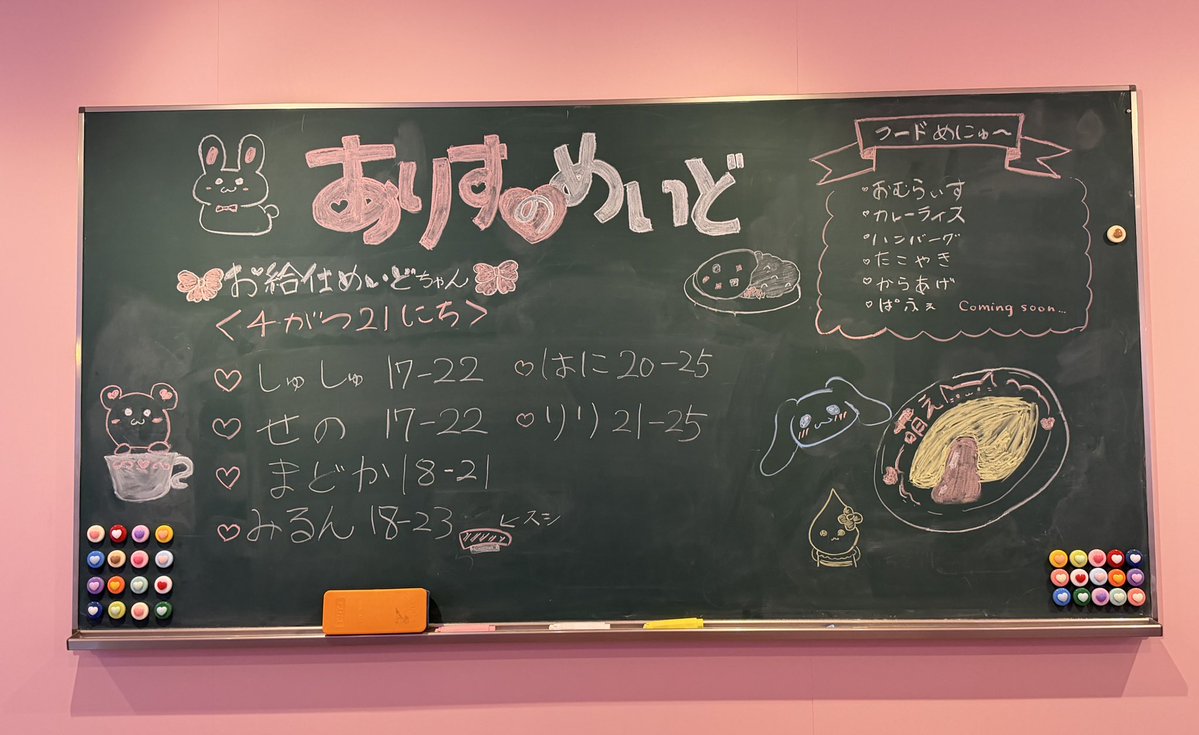 ありすのめいど
お給仕めいどちゃん
<4がつ21にち>
♡しゅしゅ 17-22 ♡はに 20-25
♡せの 17-22 ♡りり 21-25
♡まどか 18-21
♡みるん 18-23 ←スシ
フードめにゅ〜
♡おむらぃす
♡カレーライス
♡ハンバーグ
♡たこやき
♡からあげ
♡ぱふぇ Coming soon...
萌え